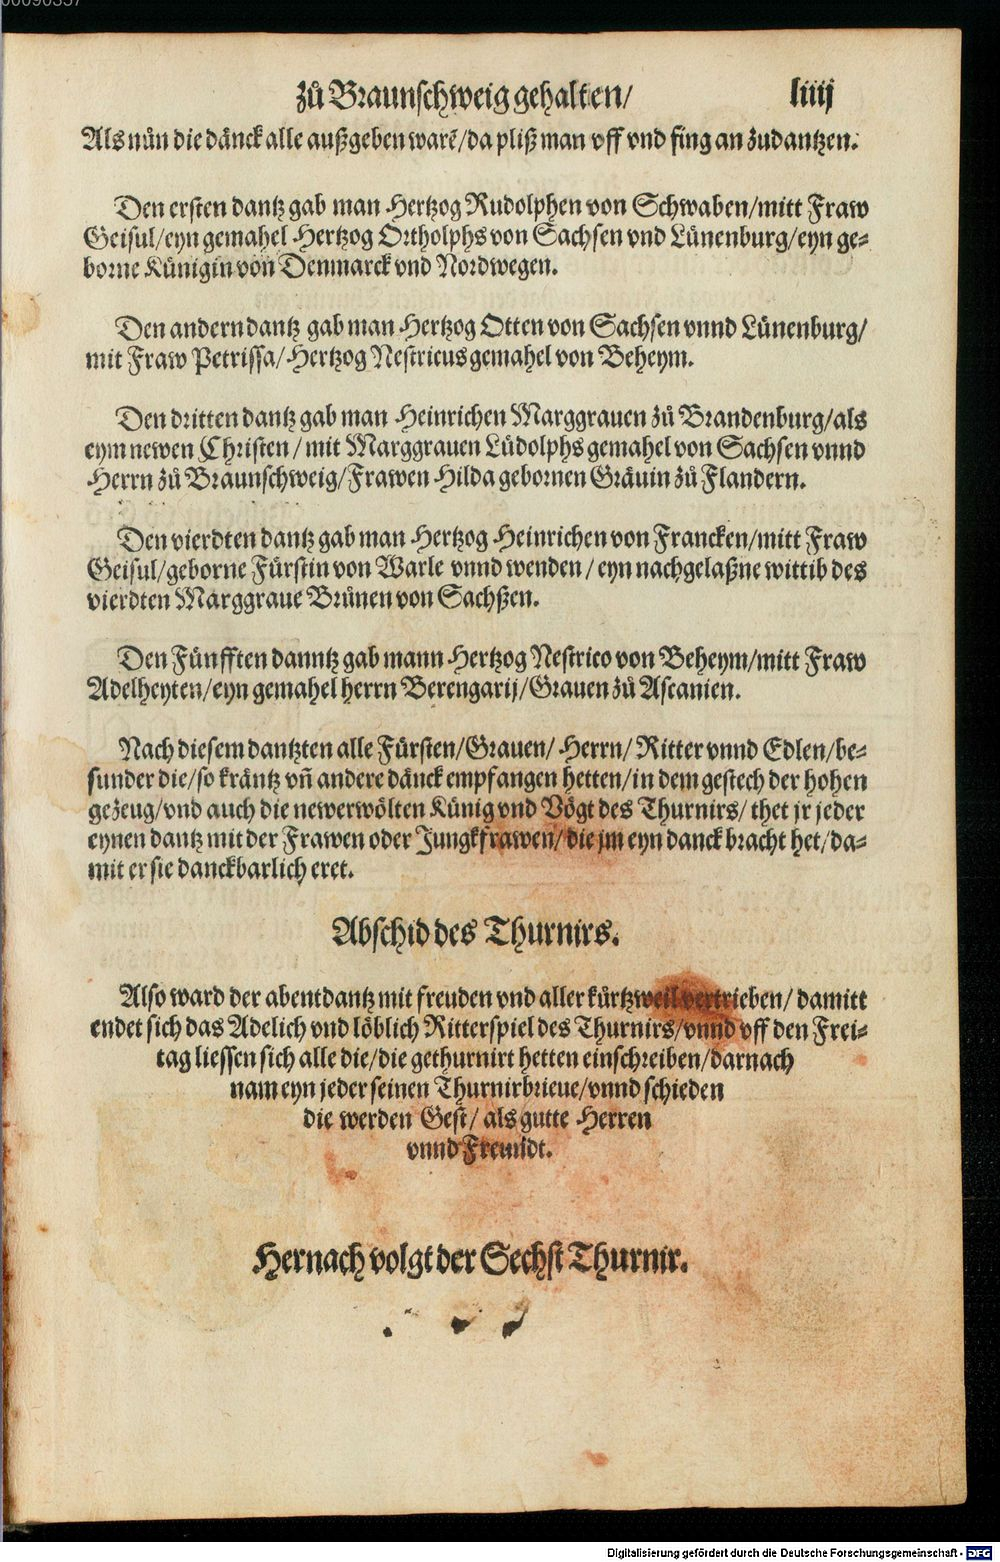 00090357
zů Braunschweig gehalten/ liiij
Als nůn die dänck alle außgeben warẽ/da pliß man vff vnd fing an zudantzen.
Den ersten dantz gab man Hertzog Rudolphen von Schwaben/mitt Fraw
Geisul/eyn gemahel Hertzog Ortholphs von Sachsen vnd Lünenburg/eyn ge⸗
borne Künigin von Denmarck vnd Nordwegen.
Den andern dantz gab man Hertzog Otten von Sachsen vnnd Lünenburg/
mit Fraw Petrissa/Hertzog Nestricus gemahel von Beheym.
Den dritten dantz gab man Heinrichen Marggrauen zů Brandenburg/als
eym newen Christen/mit Marggrauen Lůdolphs gemahel von Sachsen vnnd
Herrn zů Braunschweig/Frawen Hilda gebornen Gräuin zů Flandern.
Den vierdten dantz gab man Hertzog Heinrichen von Francken/mitt Fraw
Geisul/geborne Fürstin von Warle vnnd wenden/eyn nachgelaßne wittib des
vierdten Marggraue Brůnen von Sachßen.
Den Fünfften danntz gab mann Hertzog Nestrico von Beheym/mitt Fraw
Adelheyten/eyn gemahel herrn Berengarij/Grauen zů Ascanien.
Nach diesem dantzten alle Fürsten/Grauen/Herrn/Ritter vnnd Edlen/be⸗
sunder die/so kräntz vñ andere dänck empfangen hetten/in dem gestech der hohen
gezeug/vnd auch die newerwölten Künig vnd Vögt des Thurnirs/thet jr jeder
eynen dantz mit der Frawen oder Jungkfrawen/die jm eyn danck bracht het/da⸗
mit er sie danckbarlich eret.
Abschid des Thurnirs.
Also ward der abentdantz mit freuden vnd aller kürtzweil vertrieben/damitt
endet sich das Adelich vnd löblich Ritterspiel des Thurnirs/vnnd vff den Frei⸗
tag liessen sich alle die/die gethurnirt hetten einschreiben/darnach
nam eyn jeder seinen Thurnirbrieue/vnnd schieden
die werden Gest/als gutte Herren
vnnd Freundt.
Hernach volgt der Sechst Thurnir.
Digitalisierung gefördert durch die Deutsche Forschungsgemeinschaft - DFG